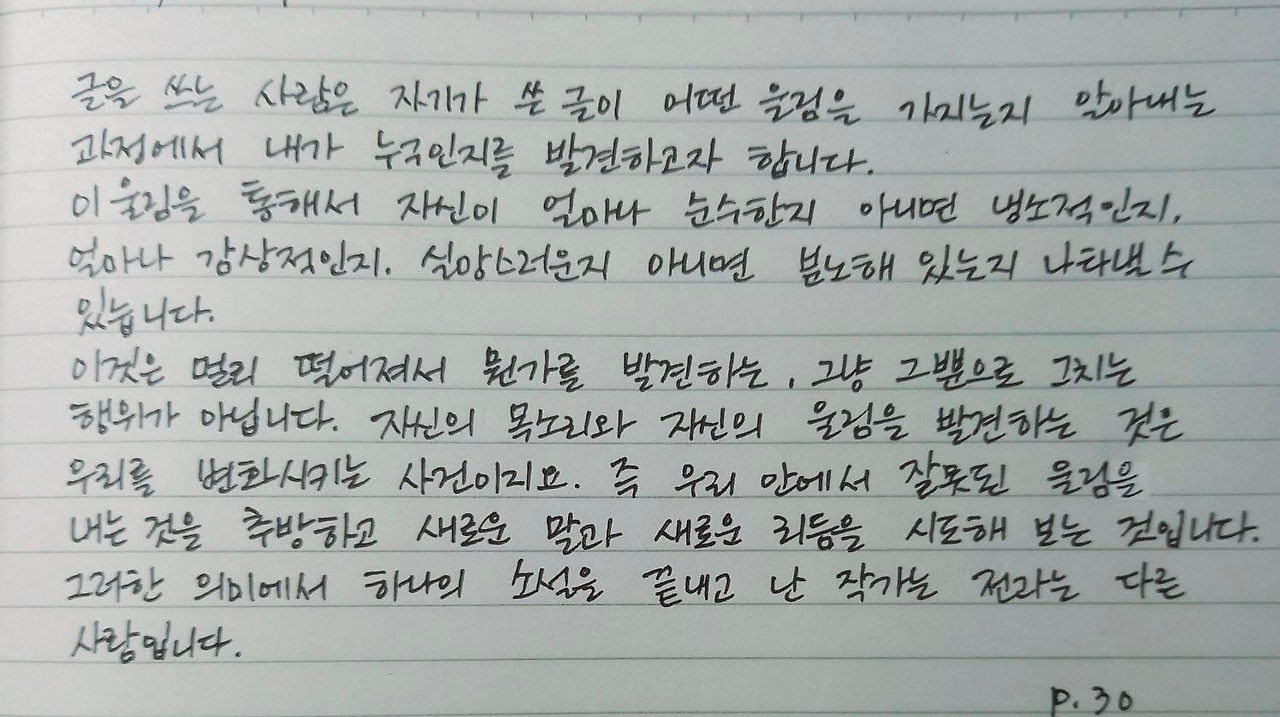 글을 쓰는 사람은 자기가 쓴 글이 어떤 울림을 가지는지 알아내는
과정에서 내가 누구인지를 발견하고자 합니다.
이 울림을 통해서 자신이 얼마나 순수한지 아니면 냉소적인지,
얼마나 감상적인지. 실망스러운지 아니면 분노해 있는지 나타낼 수
있습니다.
이것은 멀리 떨어져서 뭔가를 발견하는, 그냥 그뿐으로 그치는
행위가 아닙니다. 자신의 목소리와 자신의 울림을 발견하는 것은
우리를 변화시키는 사건이지요. 즉 우리 안에서 잘못된 울림을
내는 것을 추방하고 새로운 말과 새로운 리듬을 시도해 보는 것입니다.
그러한 의미에서 하나의 소설을 끝내고 난 작가는 전과는 다른
사람입니다.
p. 30